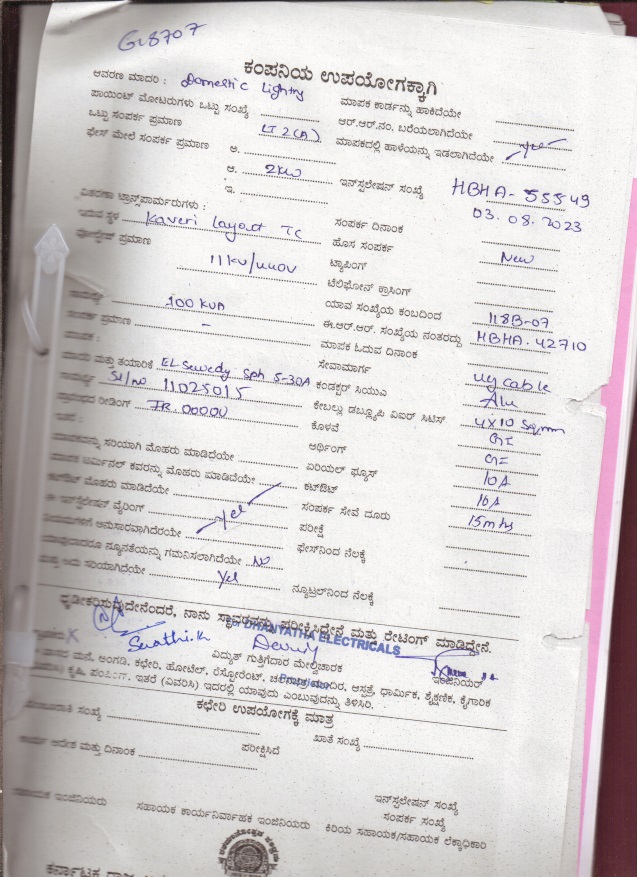 GL8707
ಕಂಪನಿಯ ಉಪಯೋಗಕ್ಕಾಗಿ
ಆವರಣ ಮಾದರಿ : Domestic Lighting
ಮಾಪಕ ಕಾರ್ಡನ್ನು ಹಾಕಿದೆಯೇ
ಪಾಯಿಂಟ್ ಮೋಟರುಗಳು ಒಟ್ಟು ಸಂಖ್ಯೆ
ಆರ್.ಆರ್.ನಂ. ಬರೆಯಲಾಗಿದೆಯೇ
ಒಟ್ಟು ಸಂಪರ್ಕ ಪ್ರಮಾಣ LT 2(A)
ಮಾಪಕದಲ್ಲಿ ಹಾಳೆಯನ್ನು ಇಡಲಾಗಿದೆಯೇ Yes
ಫೇಸ್ ಮೇಲೆ ಸಂಪರ್ಕ ಪ್ರಮಾಣ ಅ.
ಆ. 2KW
ಇನ್‌ಸ್ಟಲೇಷನ್ ಸಂಖ್ಯೆ HBHA-55549
ಇ.
03.08.2023
ವಿತರಣಾ ಟ್ರಾನ್ಸ್‌ಪಾರ್ಮರುಗಳು :
ಸಂಪರ್ಕ ದಿನಾಂಕ
ಇರುವ ಸ್ಥಳ Kaveri Layout TC
ಹೊಸ ಸಂಪರ್ಕ New
ವೋಲ್ಟೇಜ್ ಪ್ರಮಾಣ 11KV/440V
ಟ್ಯಾಪಿಂಗ್
ಟೆಲಿಫೋನ್ ಕ್ರಾಸಿಂಗ್
ಸಾಮರ್ಥ್ಯ 100 KVA
ಯಾವ ಸಂಖ್ಯೆಯ ಕಂಬದಿಂದ 118B-07
ಸಂಪರ್ಕ ಪ್ರಮಾಣ -
ಈ.ಆರ್.ಆರ್. ಸಂಖ್ಯೆಯ ನಂತರದ್ದು HBHA-42710
ಮಾಪಕ :
ಮಾಪಕ ಓದುವ ದಿನಾಂಕ
ಮತ್ತು ತಯಾರಿಕೆ EL Sewedy Sph 5-30A
ಸೇವಾಮಾರ್ಗ ug cable
ಸಾಮರ್ಥ್ಯ Sl/no 11025015
ಕಂಡಕ್ಟರ್ ಸಿಯುಎ Alu
ರೀಡಿಂಗ್ IR. 0000U
ಕೇಬಲ್ಲು ಡಬ್ಲ್ಯೂಪಿ ವಿಐರ್ ಸಿಟಿಸ್ 4X10 Sqmm
ಇತರೆ :
ಕೊಳವೆ GI
ಅರ್ಥಿಂಗ್ GI
ಮಾಪಕವನ್ನು ಸರಿಯಾಗಿ ಮೊಹರು ಮಾಡಿದೆಯೇ
ಏರಿಯಲ್ ಫ್ಯೂಸ್ 10A
ಮಾಪಕ ಟರ್ಮಿನಲ್ ಕವರನ್ನು ಮೊಹರು ಮಾಡಿದೆಯೇ
ಕಟ್‌ಔಟ್ 10A
ಕಟ್‌ಔಟ್ ಮೊಹರು ಮಾಡಿದೆಯೇ Yes
ಸಂಪರ್ಕ ಸೇವೆ ದೂರು 15mts
ಈ ಇನ್‌ಸ್ಟಲೇಷನ್ ವೈರಿಂಗ್
ಪರೀಕ್ಷೆ
ಅನುಸಾರವಾಗಿದೆರಯೇ
ಫೇಸ್‌ನಿಂದ ನೆಲಕ್ಕೆ
ಯಾವುದಾದರೂ ನ್ಯೂನತೆಯನ್ನು ಗಮನಿಸಲಾಗಿದೆಯೇ NO
ಮತ್ತು ಅದು ಸಾಯಾಗಿದೆಯೇ Yes
ನ್ಯೂಟ್ರಲ್‌ನಿಂದ ನೆಲಕ್ಕೆ
ಧೃಡೀಕರಿಸುವುದೇನೆಂದರೆ, ನಾನು ಸ್ಥಾವರವನ್ನು ಪರೀಕ್ಷಿಸಿದ್ದೇನೆ ಮತ್ತು ರೇಟಿಂಗ್ ಮಾಡಿದ್ದೇನೆ.
ELECTRICALS
Swathi.K
ವಿದ್ಯುತ್ ಗುತ್ತಿಗದಾರ ಮೇಲ್ವಿಚಾರಕ
ಇಂಜಿನಿಯರ್
ಮನೆ, ಅಂಗಡಿ, ಕಛೇರಿ, ಹೋಟೆಲ್, ರೆಸ್ಟೋರೆಂಟ್, ಚಲನಚಿತ್ರ ಮಂದಿರ, ಆಸ್ಪತ್ರೆ, ಧಾರ್ಮಿಕ, ಶೈಕ್ಷಣಿಕ, ಕೈಗಾರಿಕ
ಕೃಷಿ, ಪಂಪಿಂಗ್, ಇತರೆ (ವಿವರಿಸಿ) ಇದರಲ್ಲಿ ಯಾವುದು ಎಂಬುವುದನ್ನು ತಿಳಿಸಿರಿ.
ಕಛೇರಿ ಉಪಯೋಗಕ್ಕೆ ಮಾತ್ರ
ಸಂಖ್ಯೆ
ಖಾತೆ ಸಂಖ್ಯೆ
ಆದೇಶ ಮತ್ತು ದಿನಾಂಕ
ಪರೀಕ್ಷಿಸಿದೆ
ಇನ್‌ಸ್ಟಲೇಷನ್ ಸಂಖ್ಯೆ
ಸಂಪರ್ಕ ಸಂಖ್ಯೆ
ಇಂಜಿನಿಯರು
ಸಹಾಯಕ ಕಾರ್ಯನಿರ್ವಾಹಕ ಇಂಜಿನಿಯರು
ಕಿರಿಯ ಸಹಾಯಕ/ಸಹಾಯಕ ಲೆಕ್ಕಾಧಿಕಾರಿ